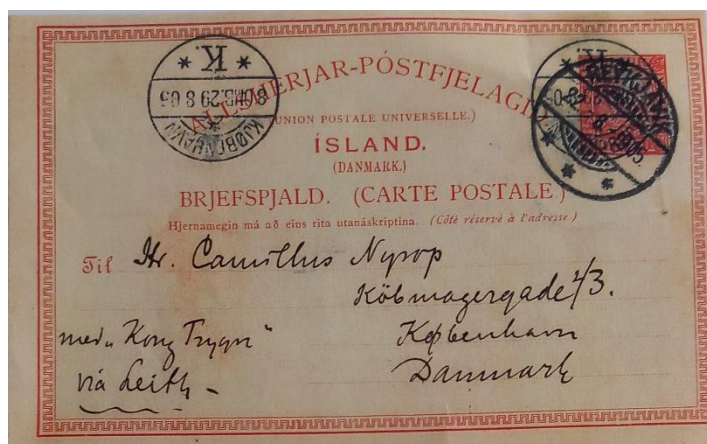 ALLSHERJAR-PÓSTFJELAGIÐ
(UNION POSTALE UNIVERSELLE.)
ÍSLAND.
(DANMARK.)
BRJEFSPJALD. (CARTE POSTALE.)
Hjernamegin má að eins rita utanáskriptina. (Côté réservé à l'adresse.)
Til Hr. Camillus Nyrop
Købmagergade
København
Danmark
med "Kong Trygve"
via Leith
K.
29 8 05
KJØBENHAVN
K.
REYKJAVIK